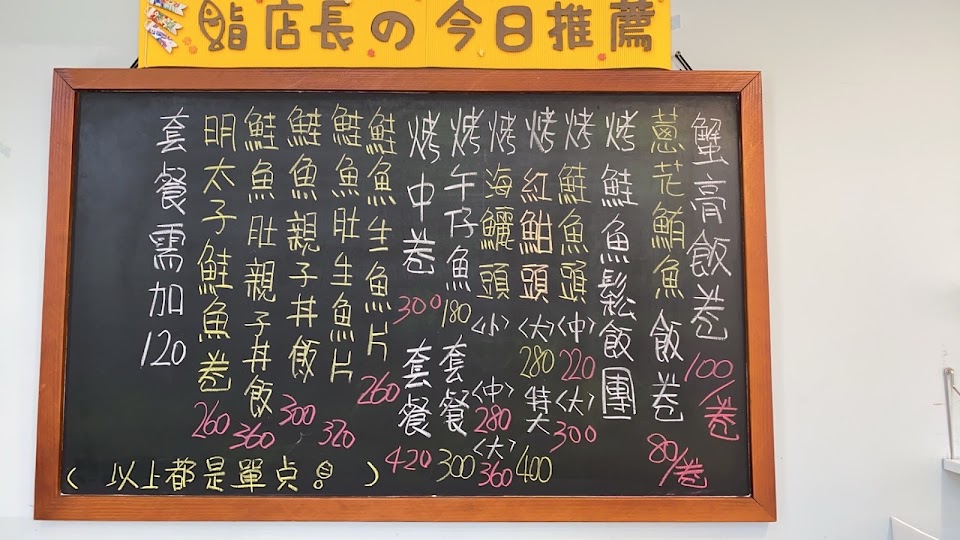 鮨店長の今日推薦
蟹膏飯卷 100/卷
蔥花鮪魚飯卷 80/卷
烤鮭魚鬆飯團
烤鮭魚頭〈中〉220〈大〉300
烤紅魽頭〈大〉280 特大 400
烤海鱺頭〈小〉〈中〉280〈大〉360
烤午仔魚 180 套餐 300
烤中卷 300 套餐 420
鮭魚生魚片 260
鮭魚肚生魚片 320
鮭魚親子丼飯 300
鮭魚肚親子丼飯 360
明太子鮭魚卷 260
套餐需加120
(以上都是單点!)